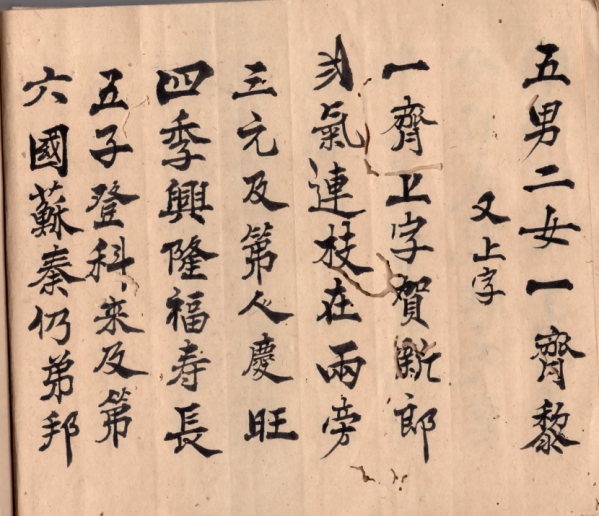 五男二女一齊黎
又上字
一齊上字賀新郎
弍氣連枝在兩旁
三元及第人慶旺
四季興隆福寿長
五子登科來及第
六國蘇秦仍弟邦